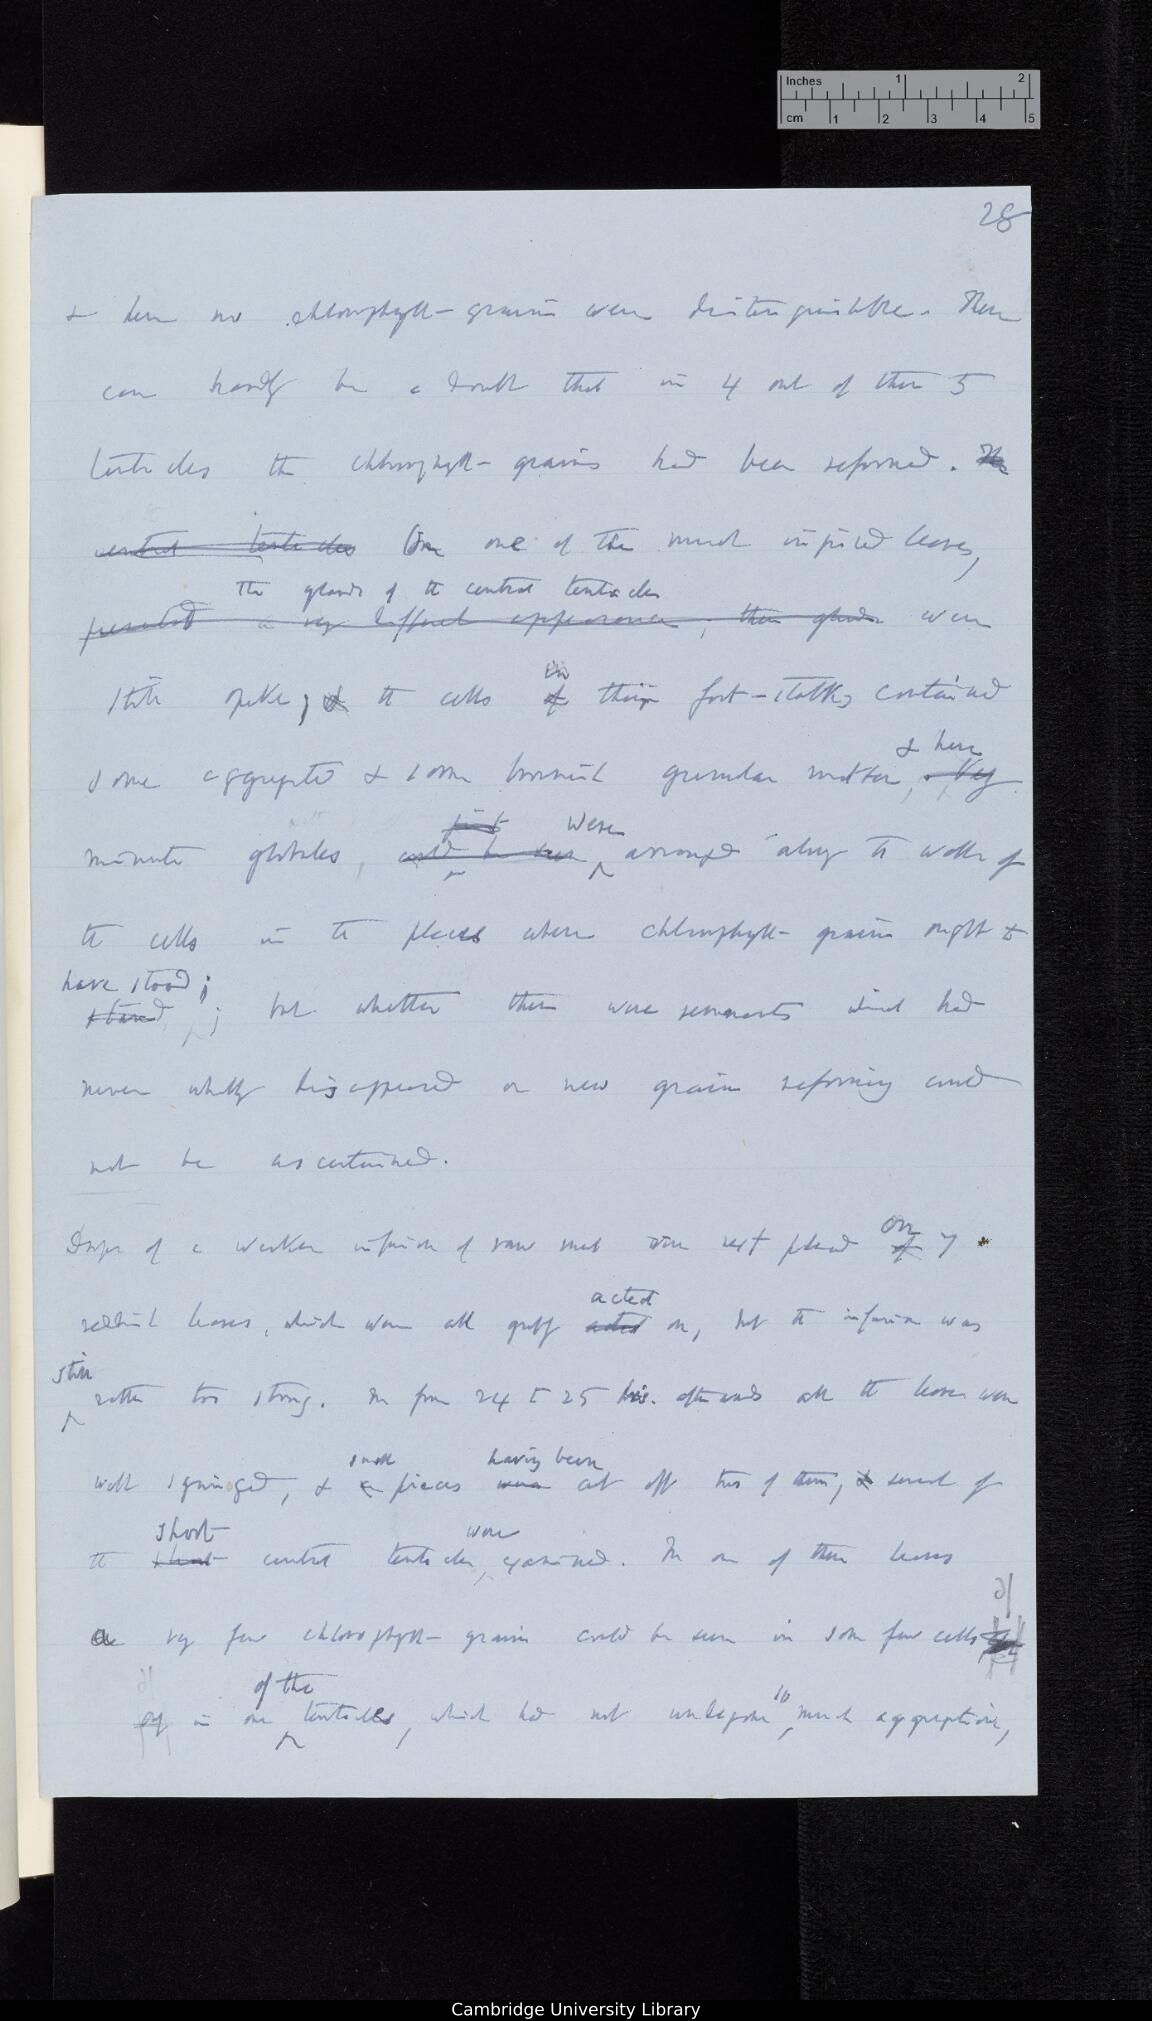 Inches 1 2
cm 1 2 3 4 5
28
& here no chlorophyll-grains were distinguishable. There
can hardly be a doubt that in 4 out of these 5
tentacles the chlorophyll-grains had been reformed. The
central tentacles one of the much injured leaves,
The glands of the central tentacles
presented a very different appearance; their glands were
still opake; & the cells of their foot-stalks contained
in
& here
some aggregated & some brownish granular matter, . Very
just were
minute globules, could be seen arranged along the walls of
the cells in the places where chlorophyll-grains ought to
have stood;
stand; but whether these were remnants which had
never wholly disappeared or new grains reforming could
not be ascertained.
on
Drops of a weaker infusion of raw meat were next placed of 7
acted
reddish leaves, which were all greatly acted on, but the infusion was
still
rather too strong. In from 24 to 25 hrs. afterwards all the leaves were
small having been
well syringed, & a pieces were cut off two of them, & several of
short were
the short central tentacles examined. In one of these leaves
a very few chlorophyll-grains could be seen in some few cells
of the
only in one tentacles, which had not undergone much aggregation,
Cambridge University Library